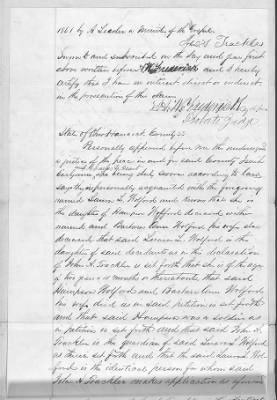 1861 by A Leader a Minister of the Gospel
John A Trackler
Sworn to and subscribed on the day and year first
above written before and I hereby
certify that I have no interest direct or indirect
in the prosecution of this claim
Probate Judge
State of Ohio Hancock County SS
Personally appeared before me the undersigned
a justice of the peace in and for said County Sarah
who being duly sworn according to law
say they personally acquainted with the foregoing
named Laura L Wolford and know that she is
the daughter of Hampson Wolford deceased within
named and Barbara Ann Wolford his wife also
deceased that said Laura L Wolford is the
daughter of said decedents as in the declaration
of John A Trackler is set forth that she is of the age
of six years months thereabouts that said
Hampson Wolford and Barbara Ann Wolford
his wife died as in said petition is set forth
and that said Hampson was a soldier as
in petition is set forth and that said John A
Trackler is the guardian of said Laura L Wolford
as therein set forth and that the said Laura L Wol-
ford is the identical person for whom said
John A Trackler makes application as aforesaid